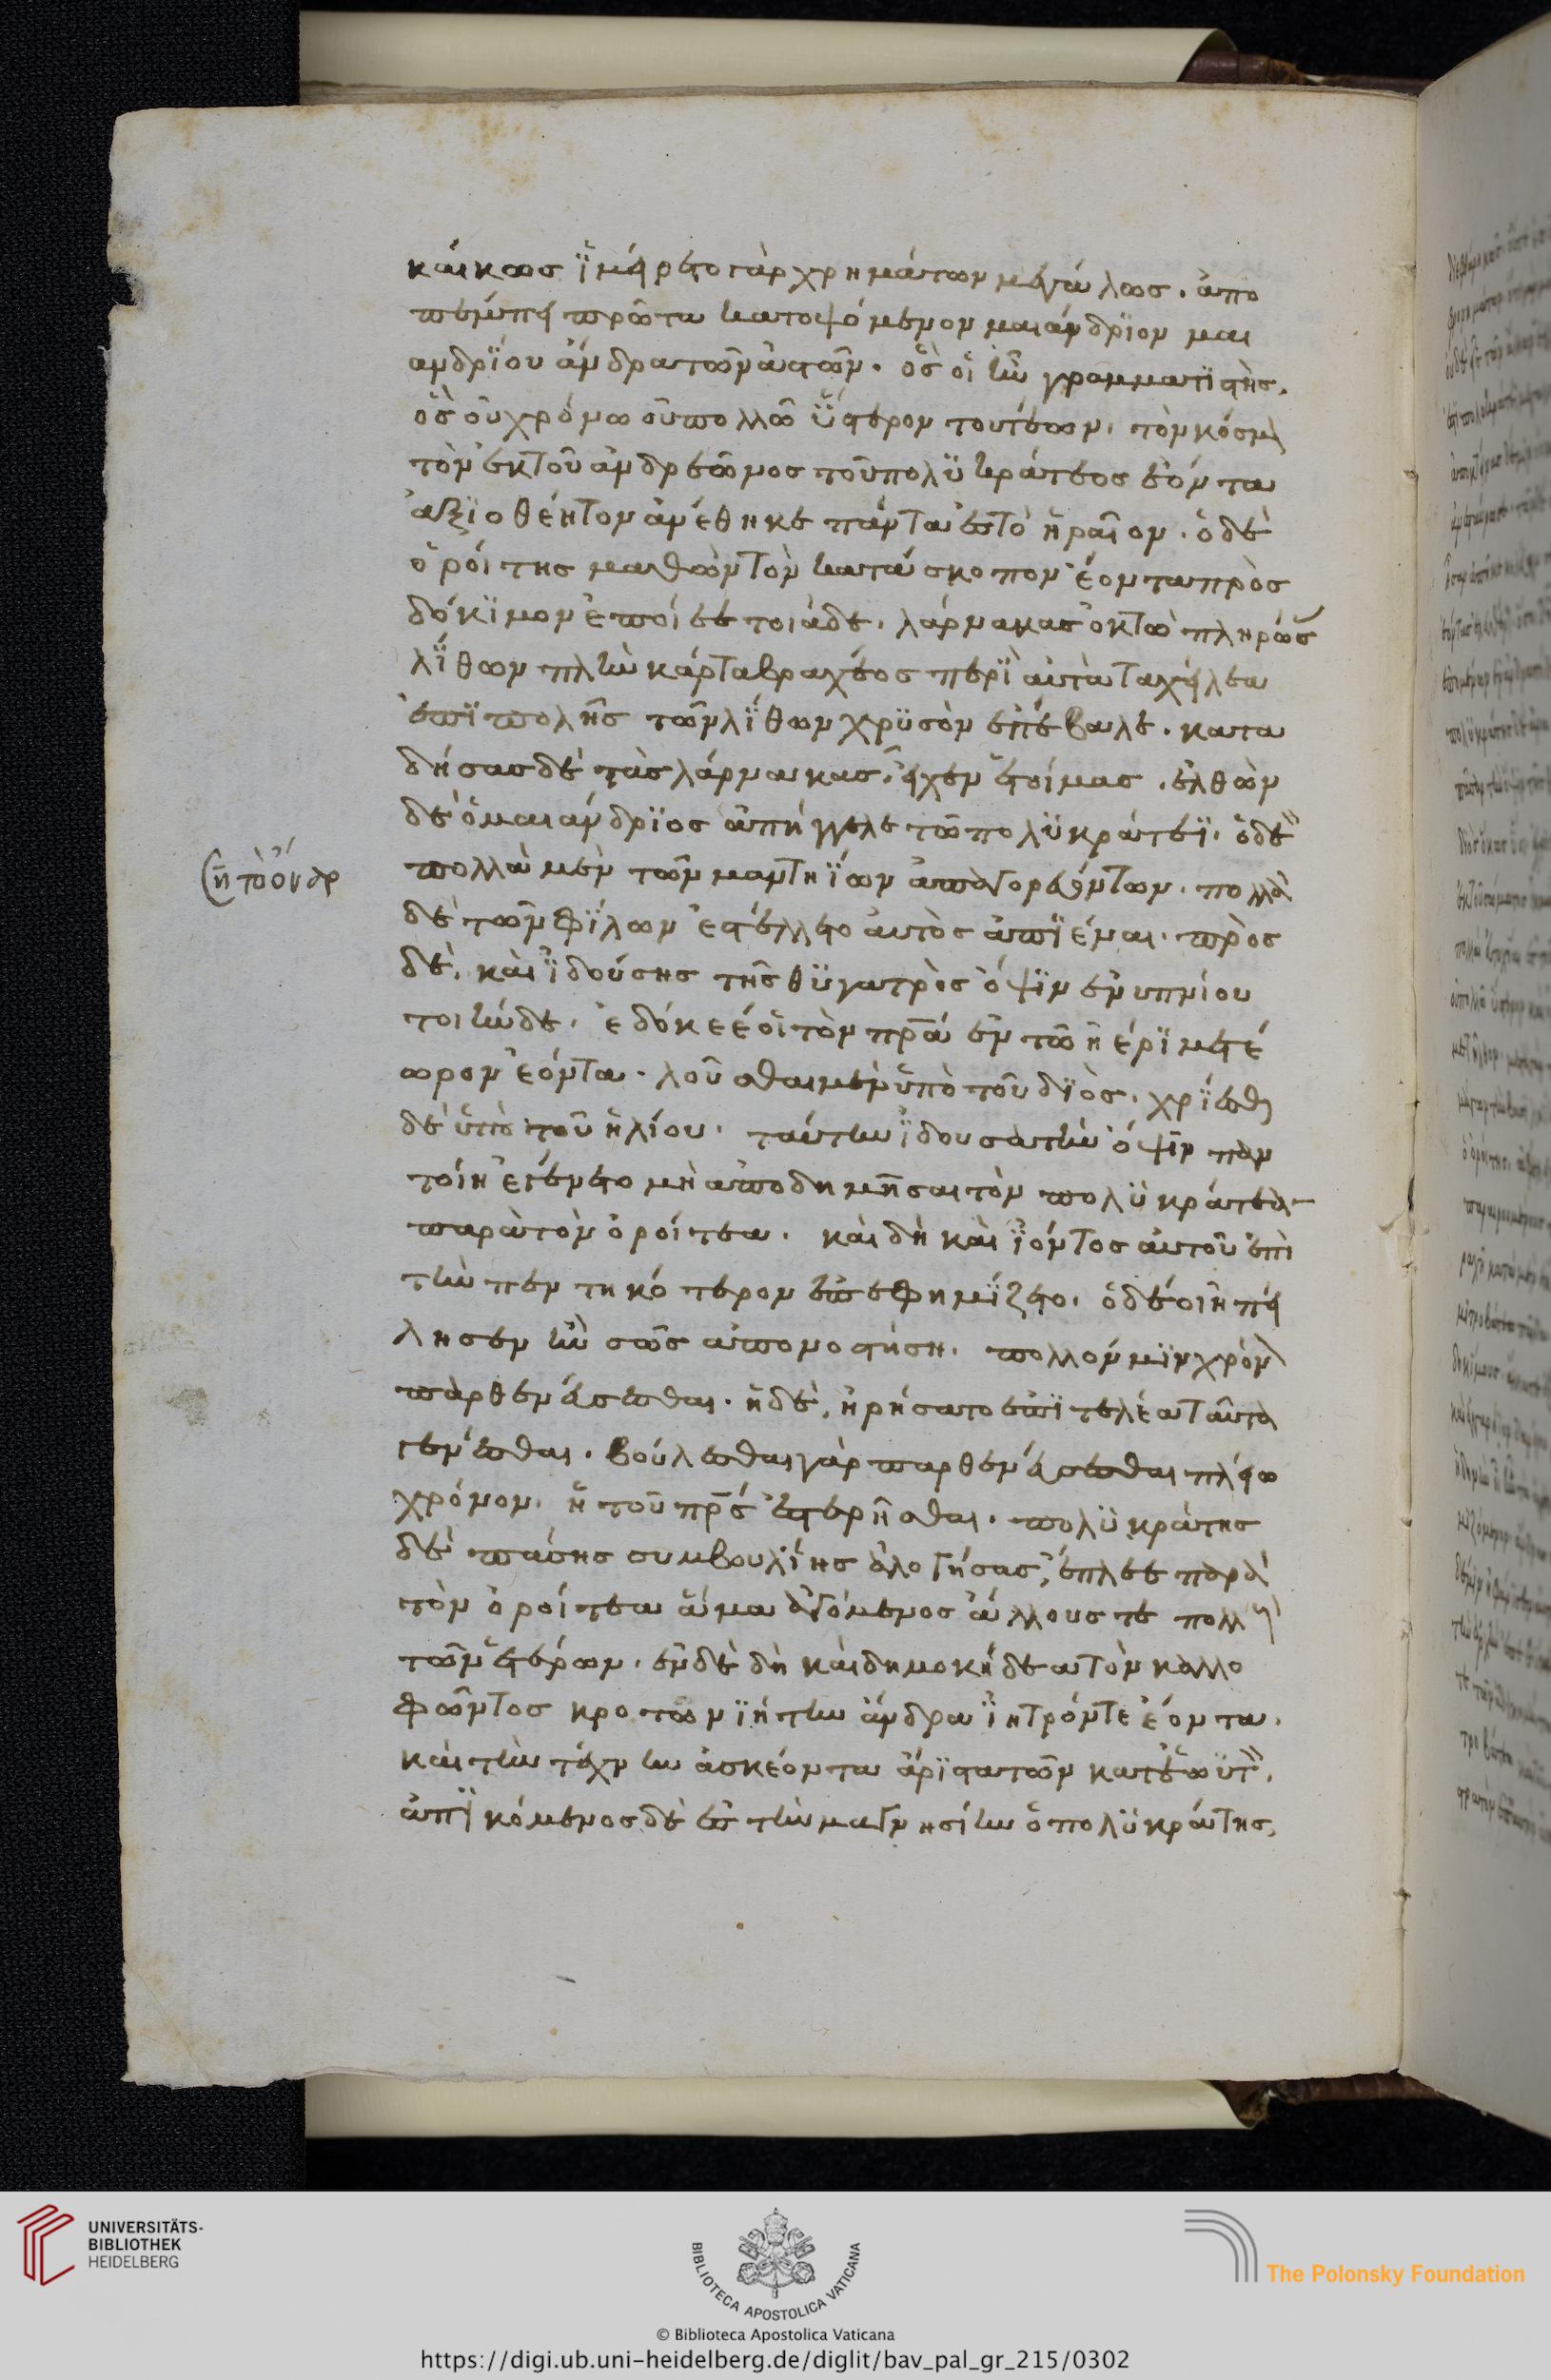 καί κως ἱμείρετο γὰρ χρημάτων μεγάλως. ἀπο
πέμπει πρῶτα κατοψόμενον μαιάνδριον μαι
ανδρίου ἄνδρα τῶν ἀστῶν. ὅς οἱ ἦν γραμματιστής.
ὃς οὐ χρόνω οὐ πολλῶ ὕστερον τουτέων. τὸν κόσμον
τὸν ἐκ τοῦ ἀνδρεῶνος τοῦ πολυκράτεος ἐόντα
ἀξιοθέητον ἀνέθηκε πάντα ἐς τὸ ἥραιον. ὁ δὲ
ὀροίτης μαθὼν τὸν κατάσκοπον ἐόντα προσ
δόκιμον ἐποίεε τοιάδε. λάρνακας ὀκτὼ πληρώσας
λίθων πλὴν κάρτα βραχέος περὶ αὐτὰ τὰ χείλεα
ἐπιπολῆς τῶν λίθων χρυσὸν ἐπέβαλε. κατα
δήσας δὲ τὰς λάρνακας, εἶχεν ἑτοίμας. ἐλθὼν
δὲ ὁ μαιάνδριος ἀπήγγελε τῶ πολυκράτεϊ. ὁ δὲ
πολλὰ μὲν τῶν μαντηΐων ἀπαγορευόντων. πολλὰ
δὲ τῶν φίλων ἐστέλλετο αὐτὸς ἀπιέναι. πρὸς
δὲ, καὶ ἰδούσης τῆς θυγατρὸς ὄψιν ἐνυπνίου
τοιήνδε. ἐδόκεέ οἱ τὸν πρα ἐν τῶ ἠέρι μετέ
ωρον ἐόντα. λοῦσθαι μὲν ὑπὸ τοῦ διὸς. χρίεσθαι
δὲ ὑπὸ τοῦ ἡλίου. ταύτην ἰδοῦσα τὴν ὄψιν παν
τοίη ἐγένετο μὴ ἀποδημῆσαι τὸν πολυκράτεα
παρὰ τὸν ὀροίτεα. καὶ δὴ καὶ ἰόντος αὐτοῦ ἐπὶ
τὴν πεντηκότερον ἐπεφημίζετο. ὁ δέ οἱ ἠπεί
λησεν ἢν σῶς ἀπονοστήση. πολλόν μιν χρόνον
παρθενεύεσθαι. ἡ δὲ, ἠρήσατο ἐπιτελέα ταῦτα
γενέσθαι. βούλεσθαι γὰρ παρθενεύεσθαι πλείω
χρόνον. ἢ τοῦ πρς ἐστερῆσθαι. πολυκράτης
δὲ πάσης συμβουλίης ἀλογήσας, ἔπλεε παρὰ
τὸν ὀροίτεα ἅμα ἀγόμενος ἄλλους τε πολλοὺς
τῶν ἑτέρων. ἐν δὲ δὴ καὶ δημοκήδεα τὸν καλλι
φῶντος κροτωνιήτην ἄνδρα ἰητρόν τε ἐόντα.
καὶ τὴν τέχνην ἀσκέοντα ἄριστα τῶν κατ' ἑωυτὸν.
ἀπικόμενος δὲ ἐς τὴν μαγνησίην ὁ πολυκράτης,
ση τὸ ὄναρ
UNIVERSITÄTS-
BIBLIOTHEK
HEIDELBERG
BIBLIOTECA APOSTOLICA VATICANA
The Polonsky Foundation
© Biblioteca Apostolica Vaticana
https://digi.ub.uni-heidelberg.de/diglit/bav_pal_gr_215/0302